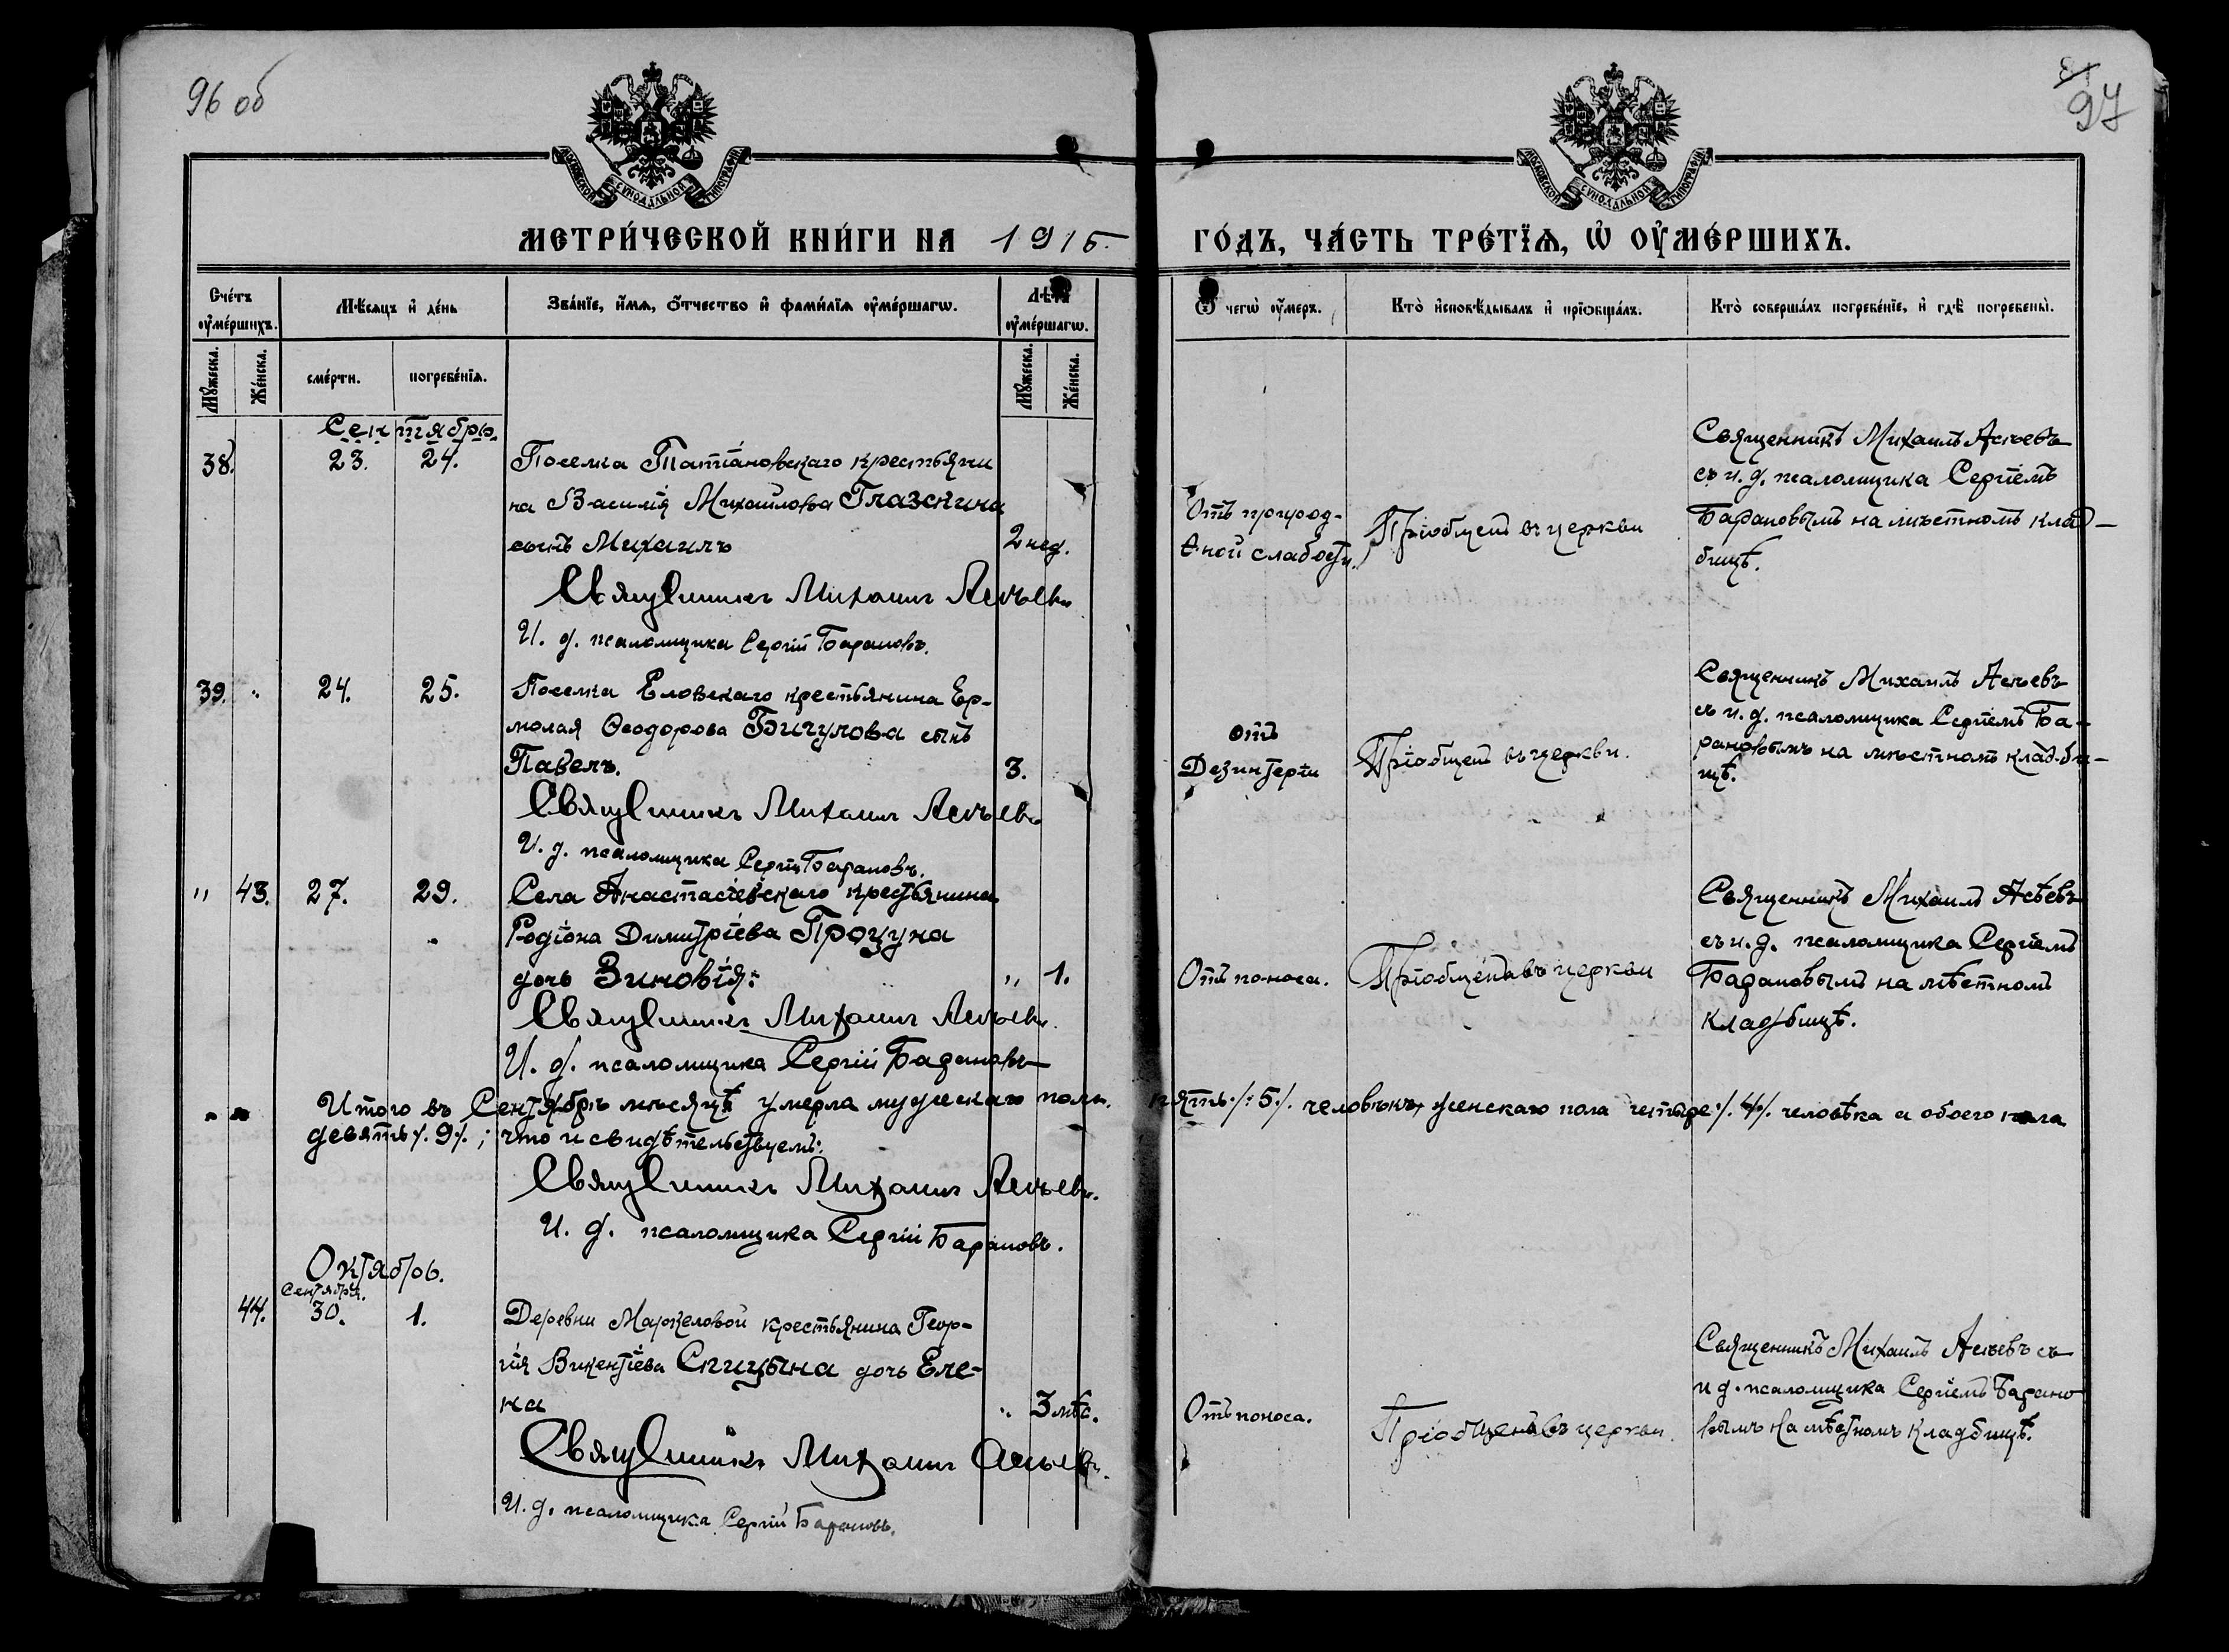 96 об
97
МОСКОВСКОЙ СУНОДАЛЬНОЙ ТИПОГРАФІИ
МОСКОВСКОЙ СУНОДАЛЬНОЙ ТИПОГРАФІИ
МЕТРИ́ЧЕСКОЙ КНИ́ГИ НА 1915.
ГО́ДЪ, ЧА́СТЬ ТРЕ́ТЇѦ, Ѡ҆ ОУ҆МЕ́РШИХЪ.
Сче́тъ оу҆ме́ршихъ.
Мѣ́сяцъ и҆ де́нь
Зва́нїе, и҆́мѧ, ѻ҆́тчество и҆ фами́лїѧ оу҆ме́ршагѡ.
Лѣта оу҆ме́ршагѡ.
Ѿ чегѡ̀ оу҆́меръ.
Кто̀ и҆сповѣ́дывалъ и҆ прїѡбща́лъ.
Кто̀ соверша́лъ погребе́нїе, и҆ гдѣ̀ погребены̀.
Мꙋ́жеска.
Же́нска.
сме́рти.
погребе́нїѧ.
Мꙋ́жеска.
Же́нска.
Сентябрь.
38. 23. 24. Поселка Татіановскаго крестьяни
на Василія Михайлова Глазкина
сынъ Михаилъ 2 нед.
Священникъ Михаилъ Асѣевъ
И. д. псаломщика Сергій Барановъ.
Отъ природ-
ной слабости.
Пріобщенъ въ церкви
Священникъ Михаилъ Асѣевъ
съ и. д. псаломщика Сергіемъ
Барановымъ на мѣстномъ клад-
бищѣ.
39. " 24. 25. Поселка Еловскаго крестьянина Ер-
молая Ѳеодорова Бичулова сынъ
Павелъ. 3.
Священникъ Михаилъ Асѣевъ
И. д. псаломщика Сергій Барановъ.
отъ
Дезинтеріи
Пріобщенъ въ церкви.
Священникъ Михаилъ Асѣевъ
съ и. д. псаломщика Сергіемъ Ба-
рановымъ на мѣстномъ кладби-
щѣ.
" 43. 27. 29. Села Анастасіевскаго крестьянина
Родіона Димитріева Процуна
дочь Зиновія: " 1.
Священникъ Михаилъ Асѣевъ.
И. д. псаломщика Сергій Барановъ
Отъ поноса.
Пріобщена въ церкви
Священникъ Михаилъ Асѣевъ
съ и. д. псаломщика Сергіемъ
Барановымъ на мѣстномъ
кладбищѣ.
Итого въ Сентябрѣ мѣсяцѣ умерла мужескаго пола. пять ./. 5 ./. человѣкъ, женскаго пола четыре ./. 4 ./. человѣка а обоего пола
девять ./. 9 ./. ; что и свидѣтельствуемъ:
Священникъ Михаилъ Асѣевъ.
И. д. псаломщика Сергій Барановъ.
Октябрь.
Сентября.
44. 30. 1. Деревни Маркеловой крестьянина Геор-
гія Викентіева Спицына дочь Еле-
на " 3 мѣс.
Священникъ Михаилъ Асѣевъ.
И. д. псаломщика Сергій Барановъ.
Отъ поноса.
Пріобщена въ церкви.
Священникъ Михаилъ Асѣевъ съ
и д. псаломщика Сергіемъ Барано
вымъ на мѣстномъ кладбищѣ.